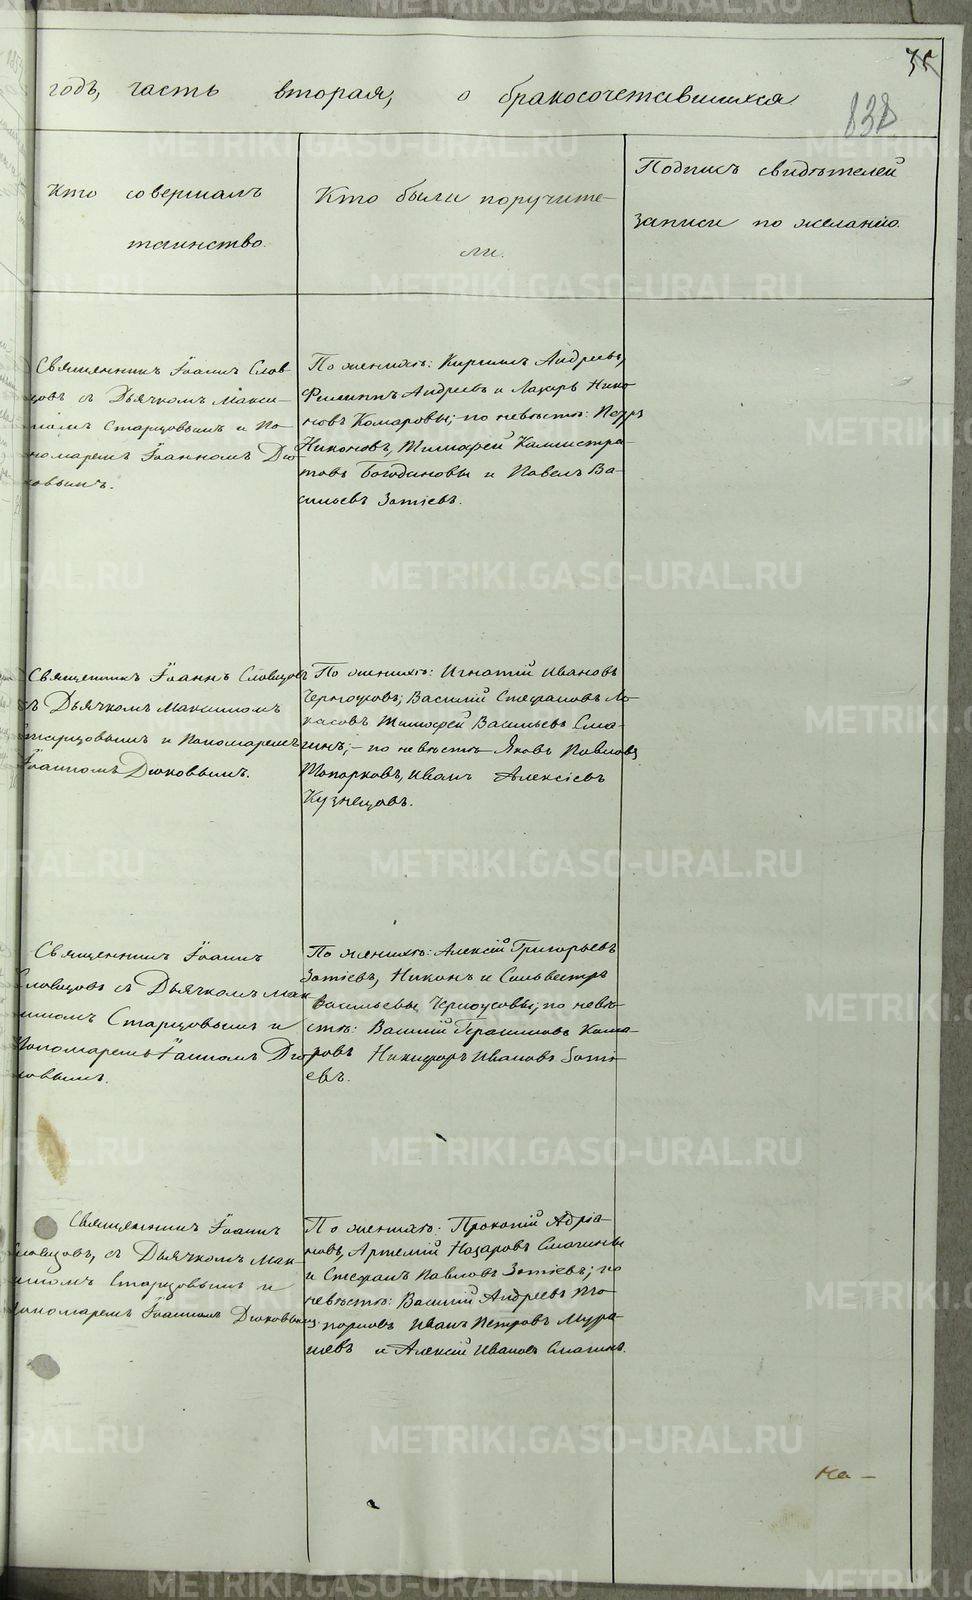 35
838
годъ, часть вторая, о бракосочетавшихся
Кто совершалъ
таинство.
Кто были поручите-
ли.
Подпись свидѣтелей
записи по желанію.
Священникъ Іоаннъ Слов-
цовъ съ Дьячкомъ Макси-
момъ Старцовымъ и По-
номаремъ Іоанномъ Дю-
ковымъ.
По женихѣ: Кириллъ Андреевъ,
Филиппъ Андреевъ и Лазарь Нико-
новъ Комаровы; по невѣстѣ: Петръ
Никоновъ, Тимофей Калистра-
товъ Богодановы и Павелъ Ва-
сильевъ Зотѣевъ.
Священникъ Іоаннъ Словцовъ
съ Дьячкомъ Максимомъ
Старцовымъ и Пономаремъ
Іоанномъ Дюковымъ.
По женихѣ: Игнатій Ивановъ
Черноусовъ; Василій Стефановъ
Тимофей Васильевъ Сма-
гинъ; - по невѣстѣ Яковъ Павловъ
Топорковъ, Иванъ Алексіевъ
Кузнецовъ.
Священникъ Іоаннъ
Словцовъ съ Дьячкомъ Мак
симомъ Старцовымъ и
Пономаремъ Іоанномъ Дю
ковымъ.
По женихѣ: Алексій Григорьевъ
Зотѣевъ, Никонъ и Сильвестръ
Васильевы Черноусовы; по невѣ-
стѣ: Василій Герасимовъ Кома-
ровъ Никифоръ Ивановъ Зотѣ-
евъ.
Священникъ Іоаннъ
Словцовъ, съ Дьячкомъ Мак-
симомъ Старцовымъ и
Пономаремъ Іоанномъ Дюковымъ
По женихѣ: Прокопій Адріа-
новъ, Артемій Назаровъ Смагины
и Стефанъ Павловъ Зотѣевъ; по
невѣстѣ: Василій Андреевъ То-
порковъ Иванъ Петровъ Мура-
шевъ и Алексій Ивановъ Смагинъ.
На -
METRIKI.GASO-URAL.RU